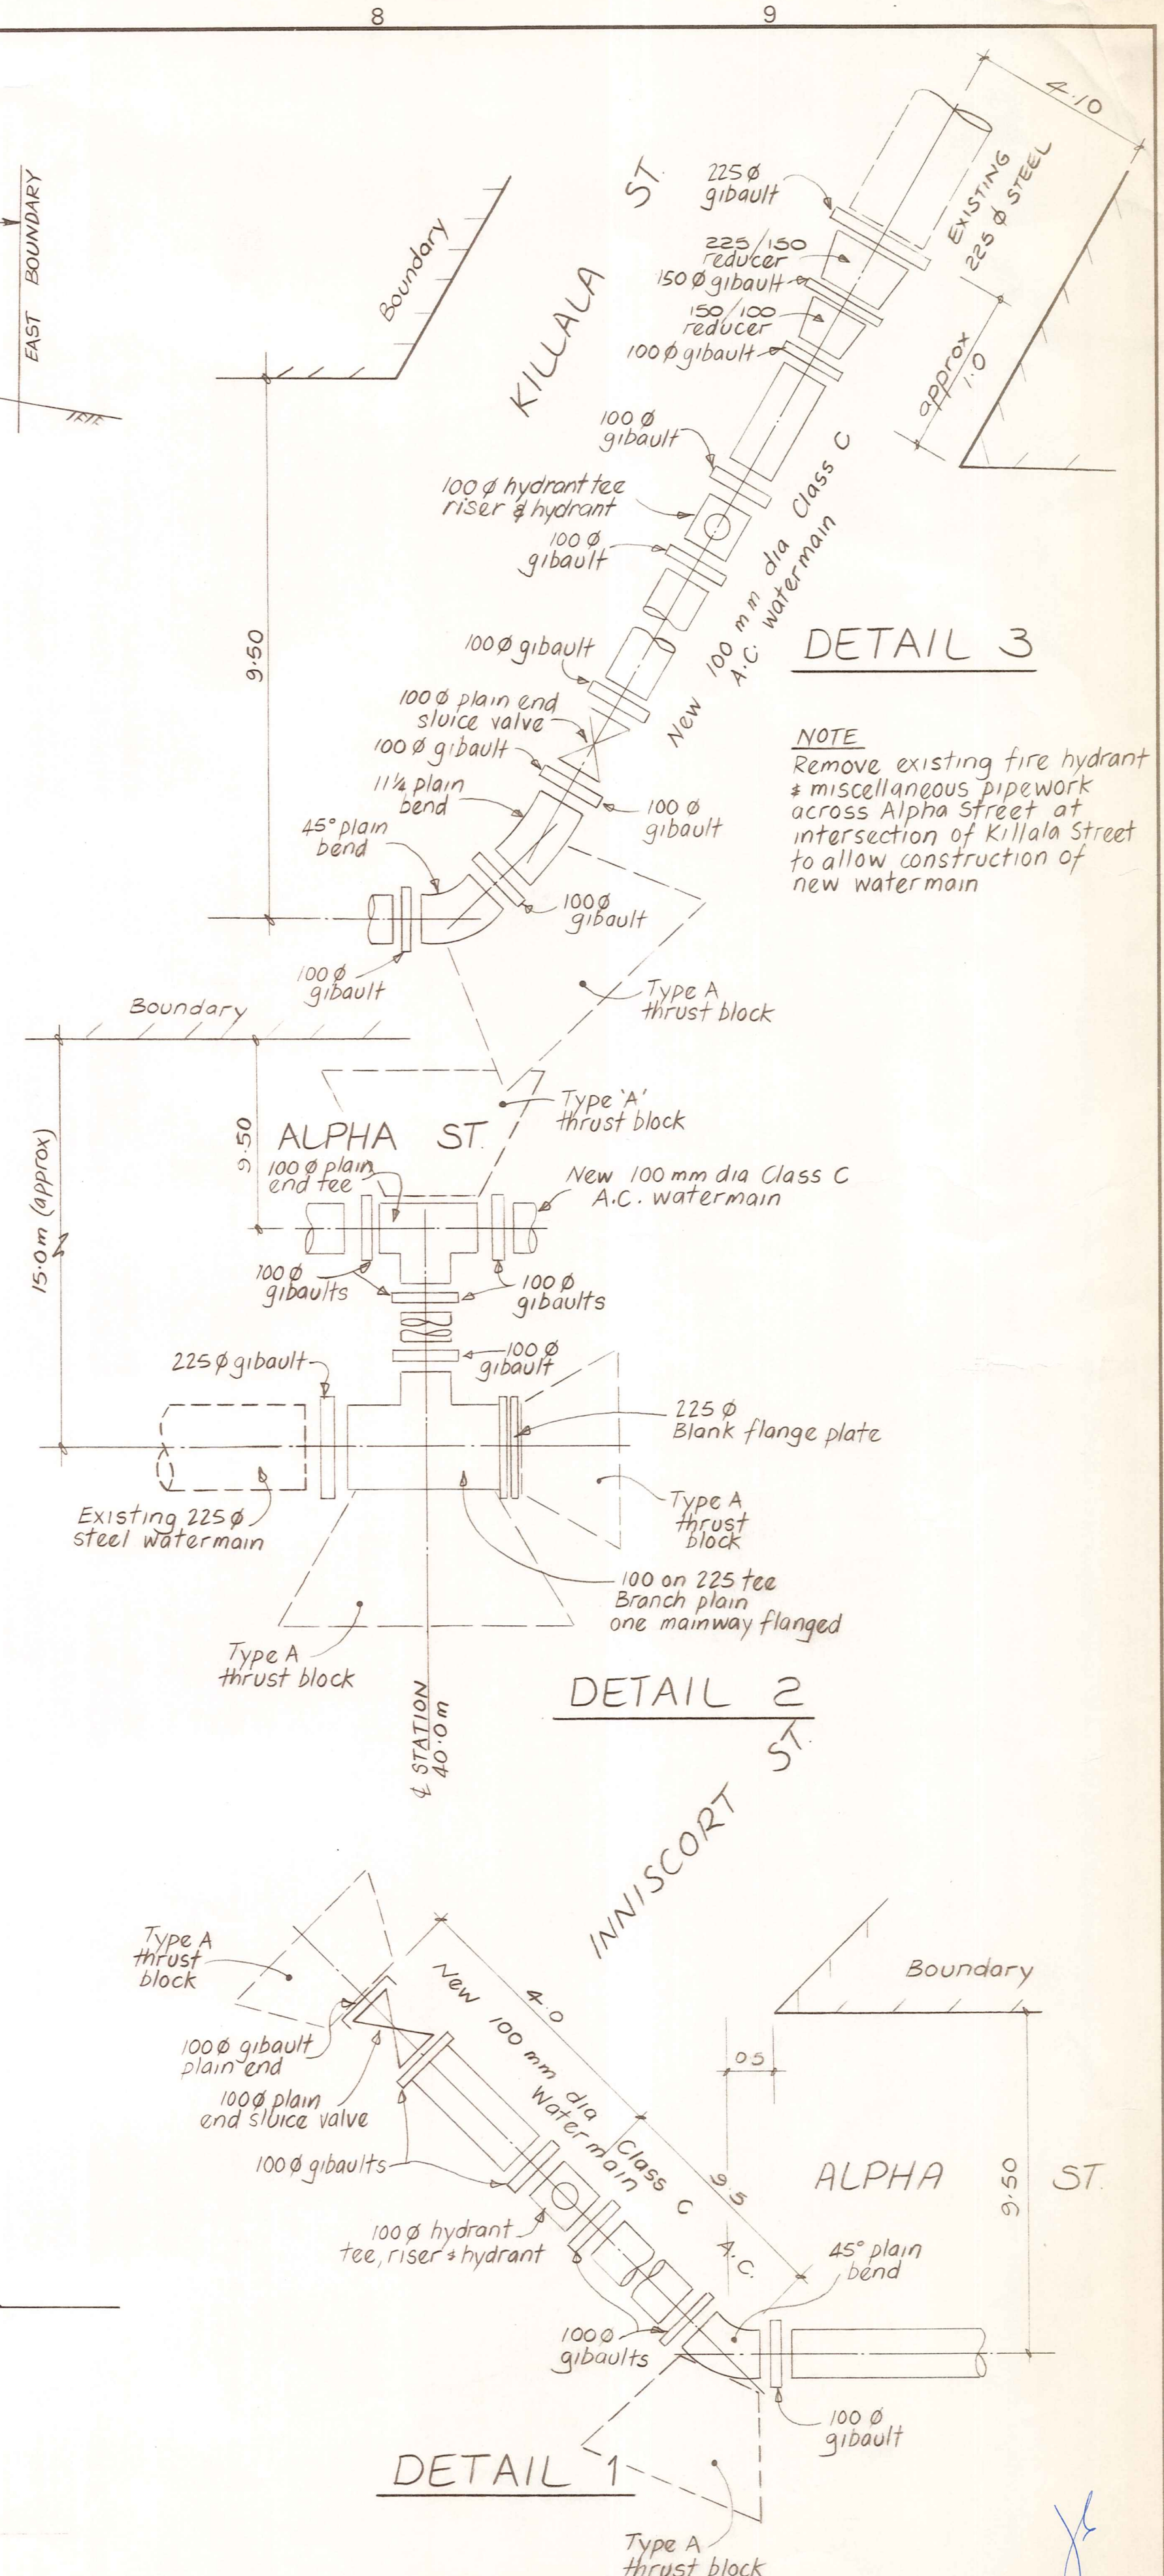 8
9
EAST BOUNDARY
Boundary
KILLALA ST.
4.10
EXISTING
225 Ø STEEL
225 Ø
gibault
225/150
reducer
150 Ø gibault
150/100
reducer
100 Ø gibault
approx
1.0
100 Ø
gibault
100 Ø hydrant tee
riser & hydrant
100 Ø
gibault
New 100 mm dia Class C
A.C. watermain
9.50
100 Ø gibault
100 Ø plain end
sluice valve
100 Ø gibault
11¼ plain
bend
45° plain
bend
100 Ø
gibault
100 Ø
gibault
100 Ø
gibault
Type A
thrust block
DETAIL 3
NOTE
Remove existing fire hydrant
& miscellaneous pipework
across Alpha Street at
intersection of Killala Street
to allow construction of
new watermain
Boundary
15.0m (approx)
9.50
ALPHA ST.
Type 'A'
thrust block
100 Ø plain
end tee
New 100 mm dia Class C
A.C. watermain
100 Ø
gibaults
100 Ø
gibaults
100 Ø
gibault
225 Ø gibault
225 Ø
Blank flange plate
Existing 225 Ø
steel watermain
Type A
thrust
block
100 on 225 tee
Branch plain
one mainway flanged
Type A
thrust block
℄ STATION
40.0m
DETAIL 2
INNISCORT ST.
Type A
thrust
block
100 Ø gibault
plain end
100 Ø plain
end sluice valve
100 Ø gibaults
100 Ø hydrant
tee, riser & hydrant
New 100 mm dia Class C A.C.
Watermain
4.0
9.5
Boundary
05
ALPHA ST.
9.50
45° plain
bend
100 Ø
gibaults
100 Ø
gibault
DETAIL 1
Type A
thrust block